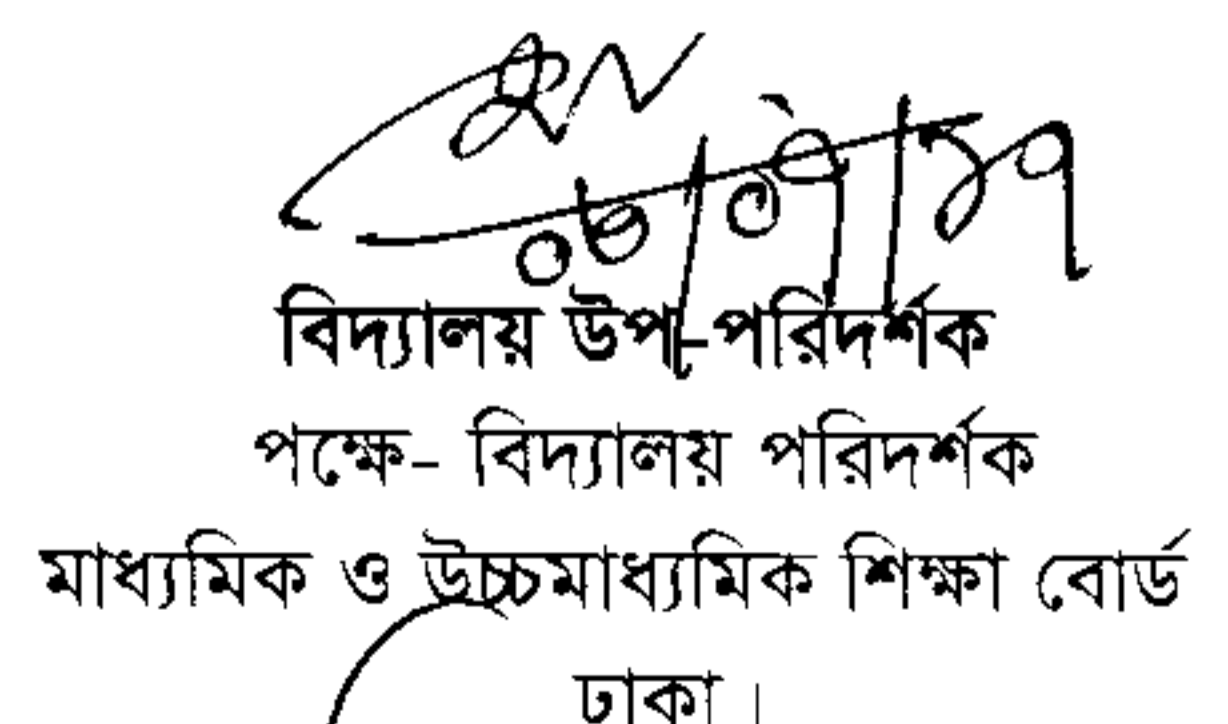 ০৮/০৭/১৭
বিদ্যালয় উপ-পরিদর্শক
পক্ষে- বিদ্যালয় পরিদর্শক
মাধ্যমিক ও উচ্চমাধ্যমিক শিক্ষা বোর্ড
ঢাকা।